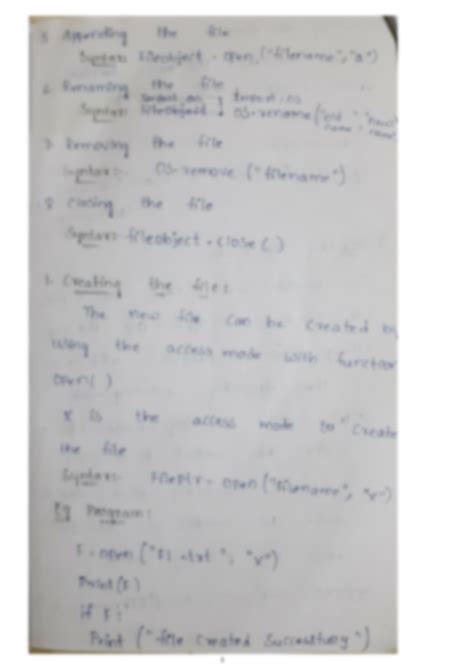 5. Appending the file
Syntax: fileobject = open ("filename", "a")
6. Renaming the file
Import os
Syntax: fileobject Import os
os.rename ("old name", "new name"
7. Removing the file
Syntax:- os.remove ("filename")
8. Closing the file
Syntax:- fileobject.close( )
1. Creating the file:
The new file can be created by
using the access mode with function
open( )
x is the access mode to create
the file
Syntax:- FilePtr = open ("filename", "x")
Eg Program:
F = open ("F1.txt", "x")
Print(F)
if F:
Print ("file created successfully")